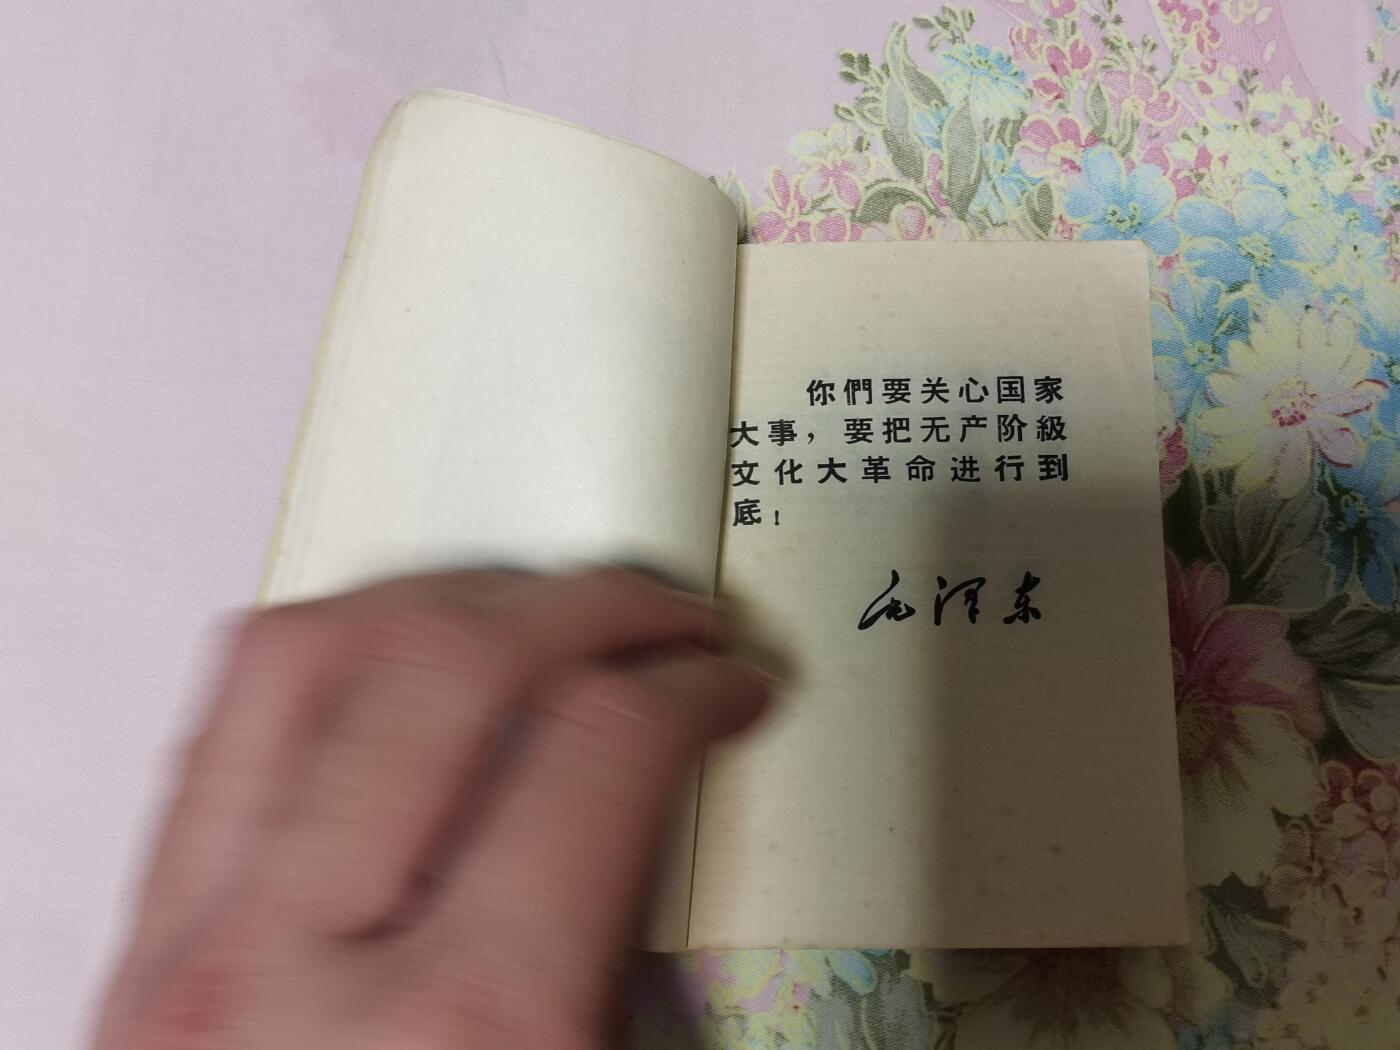 你們要关心国家
大事，要把无产阶級
文化大革命进行到
底！
毛泽东